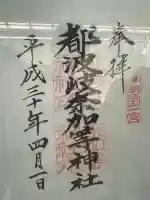 奉拝
国一宮
都波岐奈加等神社
平成三十年四月一日